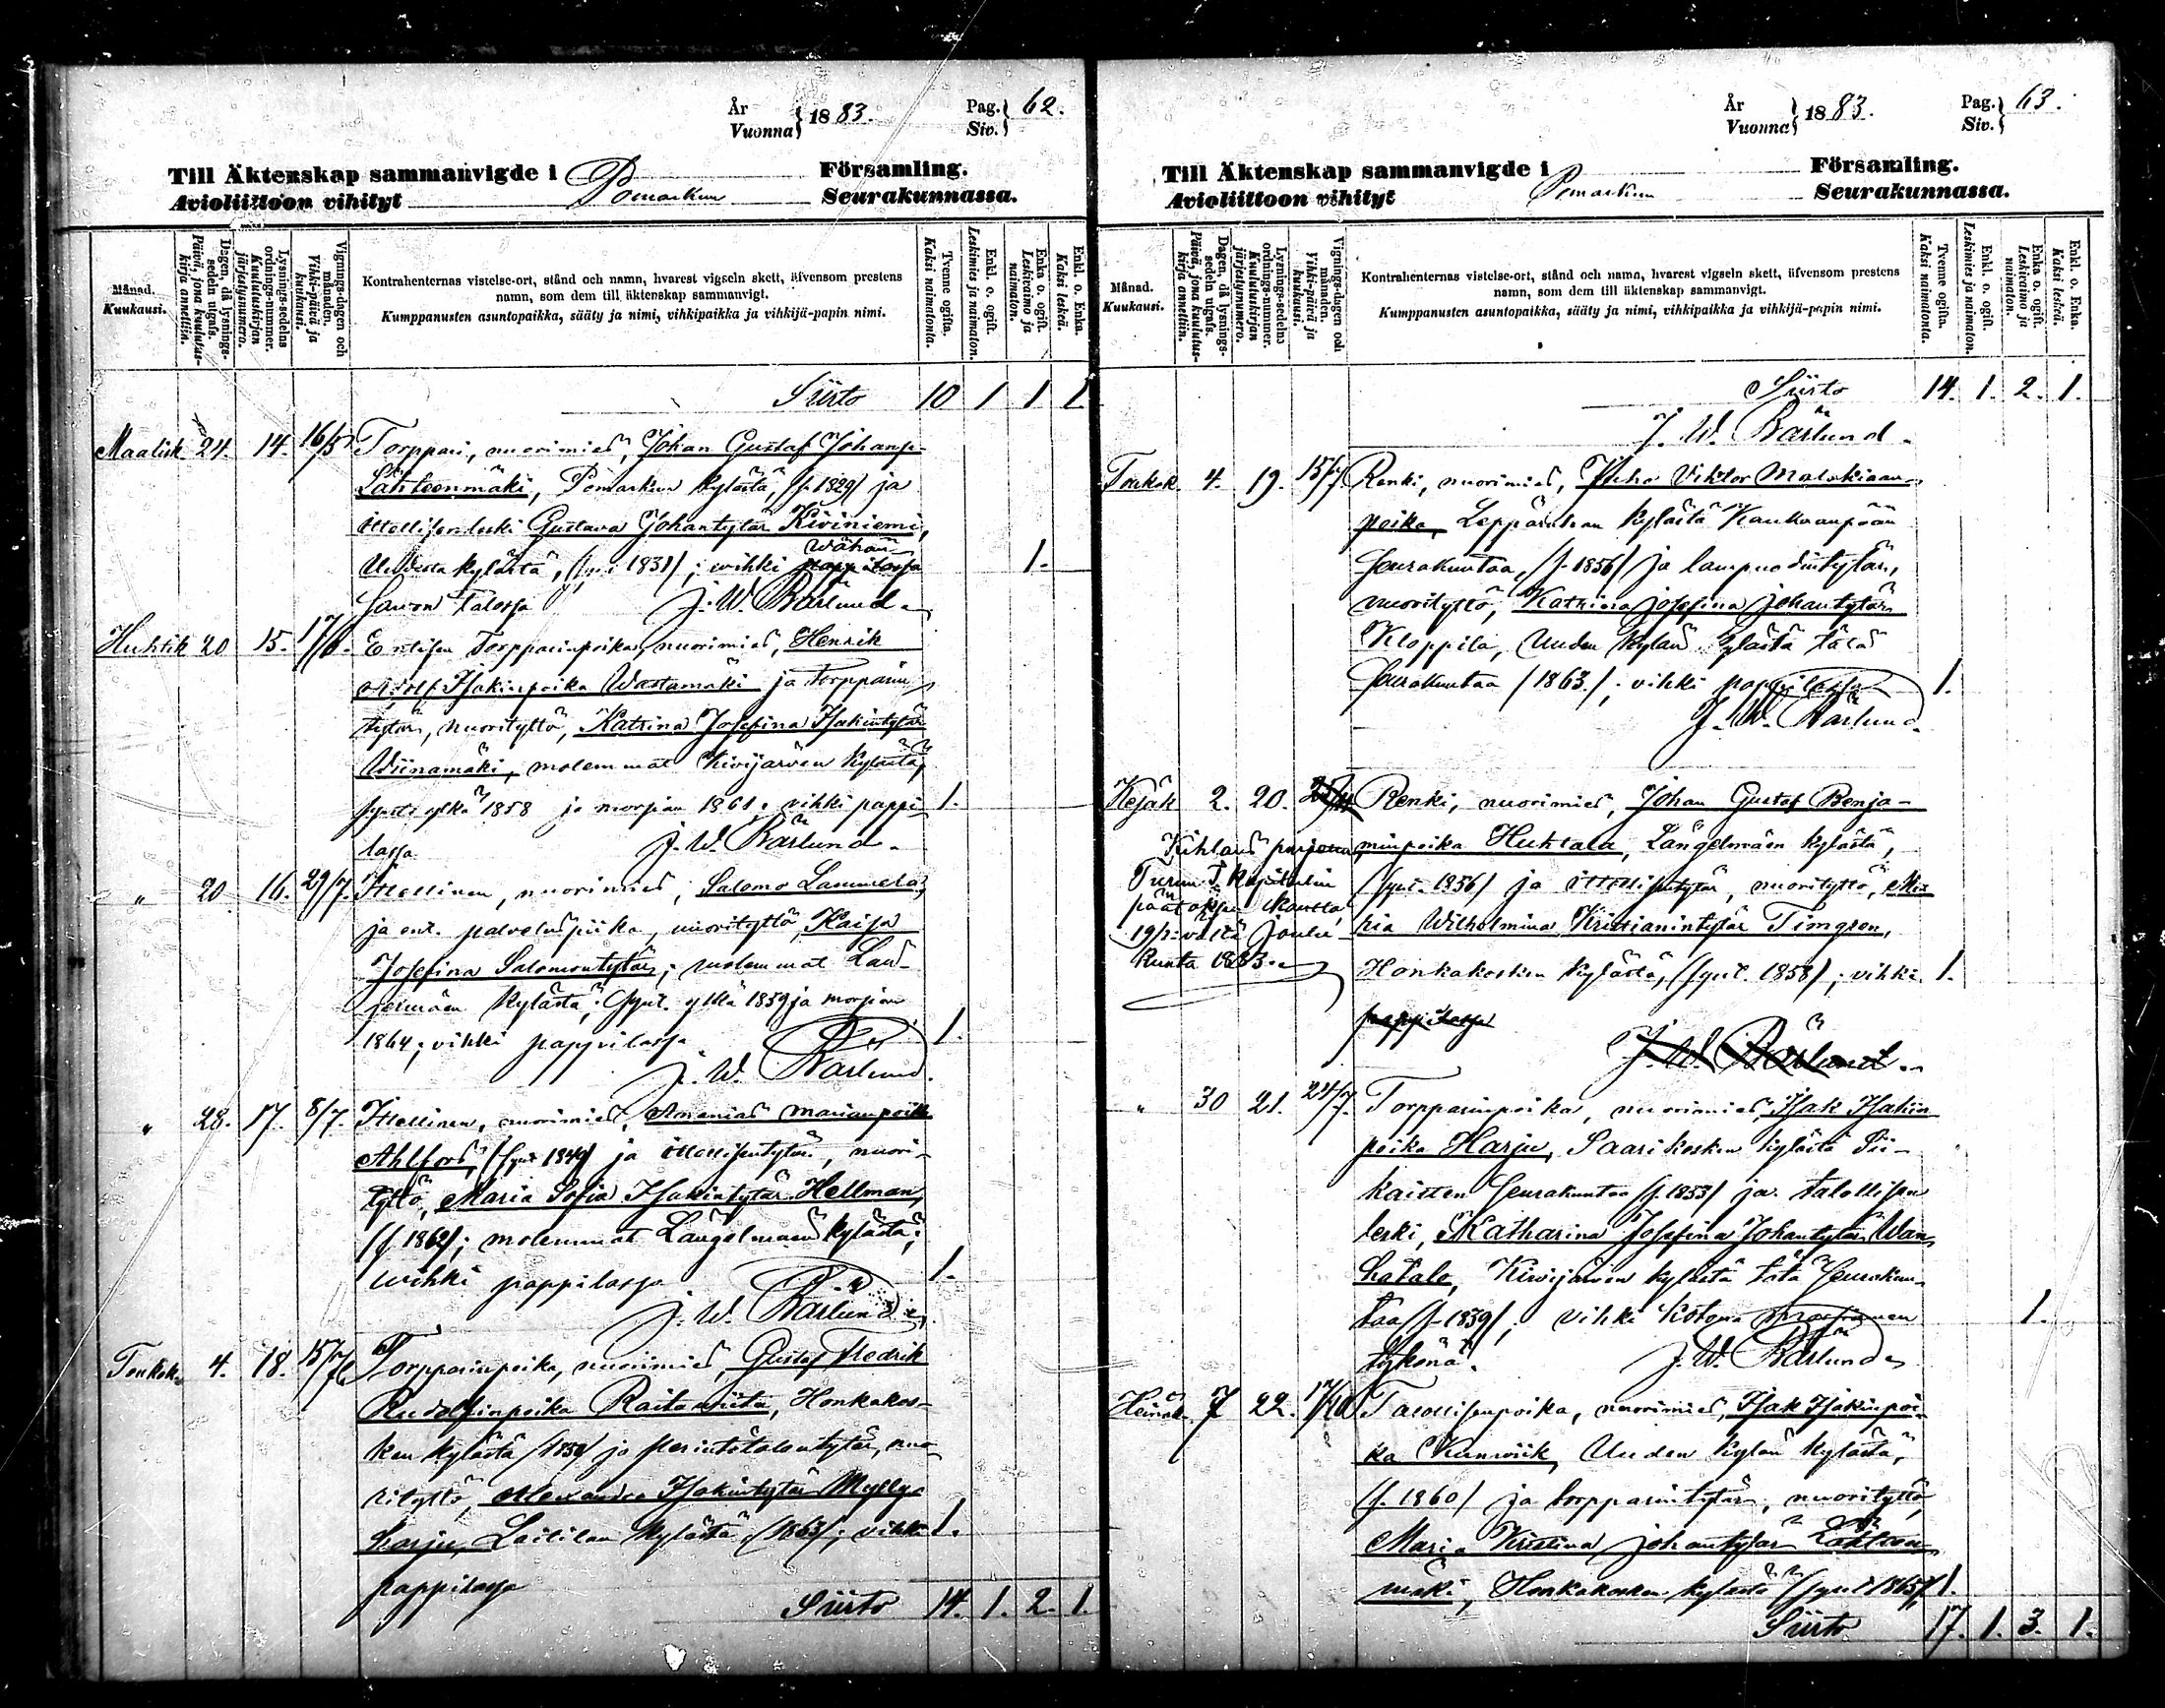 År
Vuonna } 1883.
Pag.
Siv. } 62.
Till Äktenskap sammanvigde i Församling.
Avioliittoon vihityt Pomarkun Seurakunnassa.
Månad.
Kuukausi.
Dagen, då lysnings-
sedeln utgafs.
Päivä, jona kuulutus-
kirja annettiin.
Lysnings-sedelns
ordnings-nummer.
Kuulutuskirjan
järjestysnumero.
Vignings-dagen och
månaden.
Vihki-päivä ja
kuukausi.
Kontrahenternas vistelse-ort, stånd och namn, hvarest vigseln skett, äfvensom prestens
namn, som dem till äktenskap sammanvigt.
Kumppanusten asuntopaikka, sääty ja nimi, vihkipaikka ja vihkijä-papin nimi.
Tvenne ogifta.
Kaksi naimatonta.
Enkl. o. ogift.
Leskimies ja naimaton.
Enka o. ogift.
Leskivaimo ja
naimaton.
Enkl. o. Enka.
Kaksi leskeä.
Siirto 10 1 1 1
Maalisk. 24. 14. 16/5 Torppari, nuorimies, Johan Gustaf Johanp.
Lähteenmäki, Pomarkun kylästä, (f. 1829) ja
ittellisenleski Gustava Johantytär Kiviniemi,
Wähän
Uudesta kylästä, 1831); wihki pappilassa 1.
Sawon Talossa J. W. Bärlund.
Huhtik 20 15. 17/6. Entisen Torpparinpoika, nuorimies, Henrik
Adolf Isakinpoika Wastamäki ja Torpparin
tytär, nuorityttö, Katrina Josefina Isakintytär
Wiinamäki, molemmat Kivijärven kylästä,
synt. ylkä 1858 ja morsian 1861; vihki pappi- 1.
lassa J. W. Bärlund.
" 20 16. 29/7. Itsellinen, nuorimies, Salomo Lammela,
ja ent. palveluspiika, nuorityttö, Kaisa
Josefina Salomontytär; molemmat Las-
senmäen kylästä; synt. ylkä 1859 ja morsian
1864; vihki pappilassa 1.
J. W. Bärlund.
" 28. 17. 8/7. Itsellinen, nuorimies, Ananias Marianpoika
Ahlfors, (synt 1849) ja ittellisentytär, nuori-
tyttö, Maria Sofia Isakintytär Hellman,
(f. 1862); molemmat Längelmäen kylästä;
wihki pappilassa 1.
J. W. Bärlund.
Toukok. 4. 18. 15/7 Torpparinpoika, nuorimies, Gustaf Fredrik
Rudolfinpoika Raitaniitu, Honkakos-
ken kylästä ja perintötalontytär, nuo-
rityttö, Alexandra Isakintytär Mylly-
harju, Laililan kylästä (1863); vihki 1.
pappilassa
Siirto 14. 1. 2. 1.
År
Vuonna } 1883.
Pag.
Siv. } 63.
Till Äktenskap sammanvigde i Församling.
Avioliittoon vihityt Pomarkun Seurakunnassa.
Månad.
Kuukausi.
Dagen, då lysnings-
sedeln utgafs.
Päivä, jona kuulutus-
kirja annettiin.
Lysnings-sedelns
ordnings-nummer.
Kuulutuskirjan
järjestysnumero.
Vignings-dagen och
månaden.
Vihki-päivä ja
kuukausi.
Kontrahenternas vistelse-ort, stånd och namn, hvarest vigseln skett, äfvensom prestens
namn, som dem till äktenskap sammanvigt.
Kumppanusten asuntopaikka, sääty ja nimi, vihkipaikka ja vihkijä-papin nimi.
Tvenne ogifta.
Kaksi naimatonta.
Enkl. o. ogift.
Leskimies ja naimaton.
Enka o. ogift.
Leskivaimo ja
naimaton.
Enkl. o. Enka.
Kaksi leskeä.
Siirto 14. 1. 2. 1.
J. W. Bärlund.
Toukok. 4. 19. 15/7. Renki, nuorimies, Juho Viktor Malakiaan-
poika, Leppäruhan kylästä Kankaanpään
Seurakuntaa, (f. 1856) ja lampuodintytär,
nuorityttö, Katrina Josefina Johantytär
Kloppila, Uuden kylän kylästä tätä
Seurakuntaa (1863); vihki pappilassa 1.
J. W. Bärlund.
Kesäk 2. 20. Renki, nuorimies, Johan Gustaf Benja-
Kihlaus purjettu minpoika Huhtala, Längelmäen kylästä,
Turun T. Kapitulin (synt. 1856) ja ittellisentytär, nuorityttö, Ma-
päätöksen kautta
19/12 Joulu- ria Wilhelmina Kristianintytär Timgren,
kuuta 1883. Honkakosken kylästä, (synt. 1858); vihki 1.
pappilassa
J. W. Bärlund.
" 30 21. 24/7. Torpparinpoika, nuorimies, Isak Isakin
poika Harju, Saarikosken kylästä Sii-
kaisten Seurakuntaa (f. 1853) ja talollisen
leski, Katharina Josefina Johantytär Wan-
hatalo, Kivijärven kylästä tätä Seurakun-
taa (f. 1839); vihki kotona morsiamen 1.
tykönä. J. W. Bärlund.
Heinäk. 7 22. 17/10 Talollisenpoika, nuorimies, Isak Isakinpoi-
ka Kunwiik, Uuden kylän kylästä,
(f. 1860) ja torpparintytär, nuorityttö,
Maria Kristina Johantytär Lähteen-
mäki, Honkakosken kylästä (synt 1865); 1.
Siirto 17. 1. 3. 1.